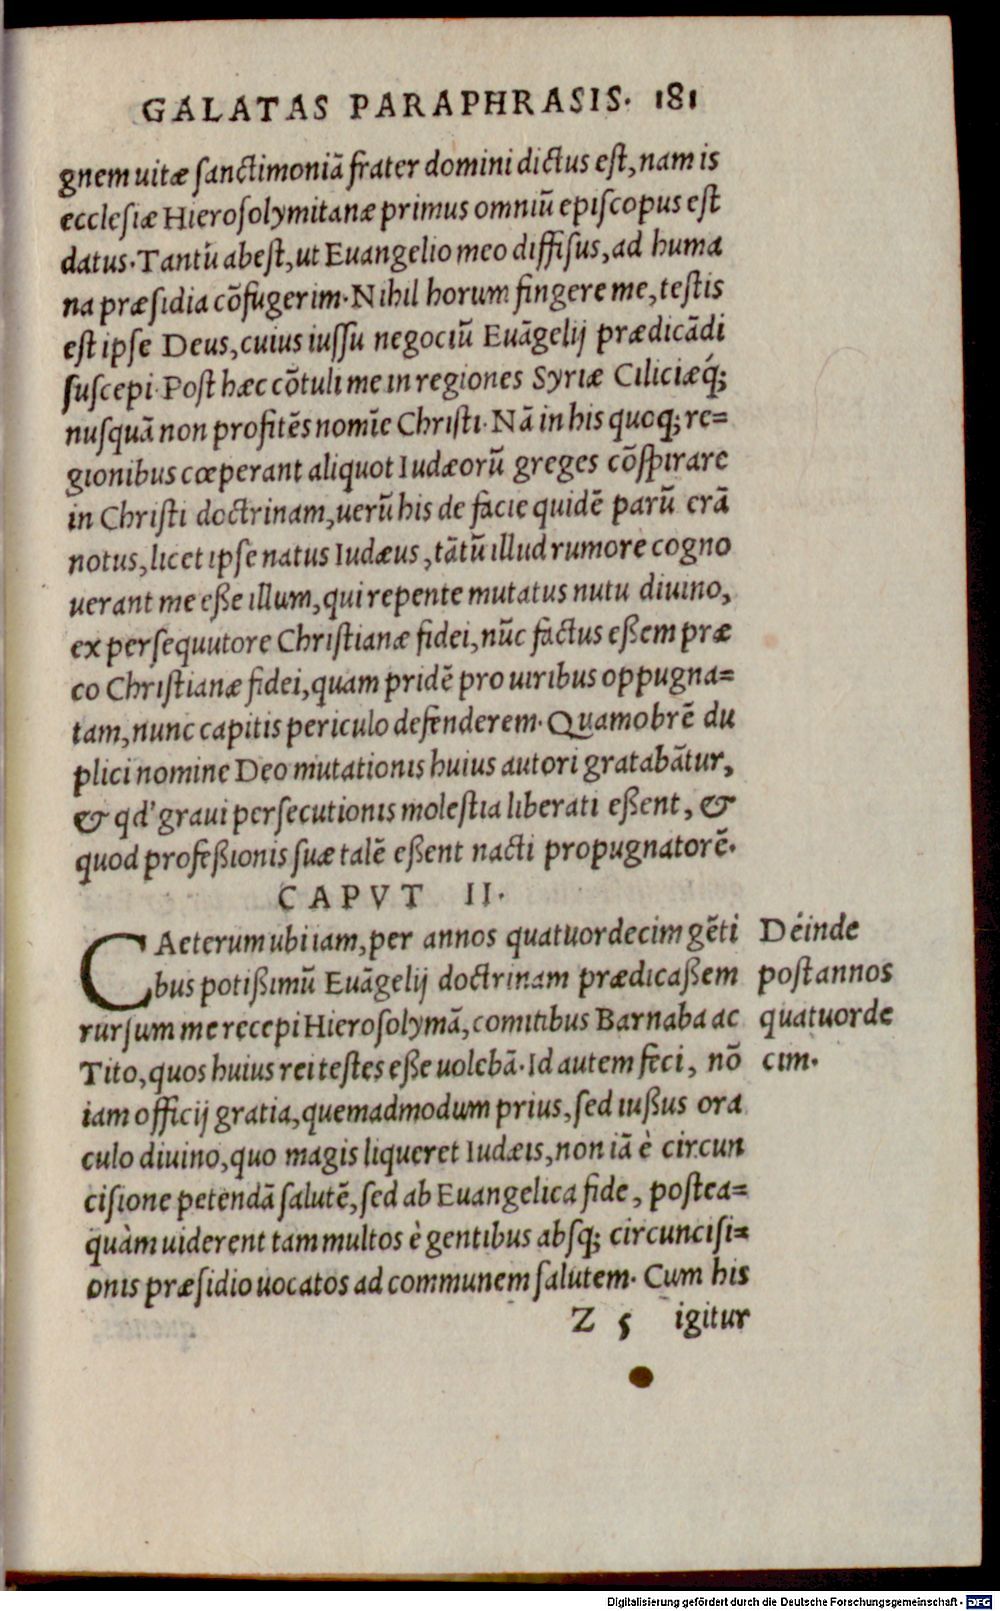 GALATAS PARAPHRASIS. 181
gnem uitæ ſanctimoniā frater domini dictus eſt, nam is
eccleſiæ Hieroſolymitanæ primus omniū epiſcopus eſt
datus. Tantū abeſt, ut Euangelio meo diffiſus, ad huma
na præſidia cōfugerim. Nihil horum fingere me, teſtis
eſt ipſe Deus, cuius iuſſu negociū Euāgelij prædicādi
ſuſcepi. Poſt hæc cōtuli me in regiones Syriæ Ciliciæq́;
nuſquā non profitēs nomīe Chriſti. Nā in his quoq; re=
gionibus cœperant aliquot Iudæorū greges cōſpirare
in Chriſti doctrinam, uerū his de facie quidē parū erā
notus, licet ipſe natus Iudæus, tātū illud rumore cogno
uerant me eße illum, qui repente mutatus nutu diuino,
ex perſequutore Chriſtianæ fidei, nūc factus eßem præ
co Chriſtianæ fidei, quam pridē pro uiribus oppugna=
tam, nunc capitis periculo defenderem. Quamobrē du
plici nomine Deo mutationis huius autori gratabātur,
& qd' graui perſecutionis moleſtia liberati eßent, &
quod profeßionis ſuæ talē eßent nacti propugnatorē.
CAPVT II.
CAeterum ubi iam, per annos quatuordecim gēti
bus potißimū Euāgelij doctrinam prædicaßem
rurſum me recepi Hieroſolymā, comitibus Barnaba ac
Tito, quos huius rei teſtes eße uolebā. Id autem feci, nō
iam officij gratia, quemadmodum prius, ſed iußus ora
culo diuino, quo magis liqueret Iudæis, non iā è circun
ciſione petendā ſalutē, ſed ab Euangelica fide, poſtea=
quàm uiderent tam multos è gentibus abſq; circunciſi=
onis præſidio uocatos ad communem ſalutem. Cum his
Z 5 igitur
Déinde
poſt annos
quatuorde
cim.
Digitalisierung gefördert durch die Deutsche Forschungsgemeinschaft - DFG